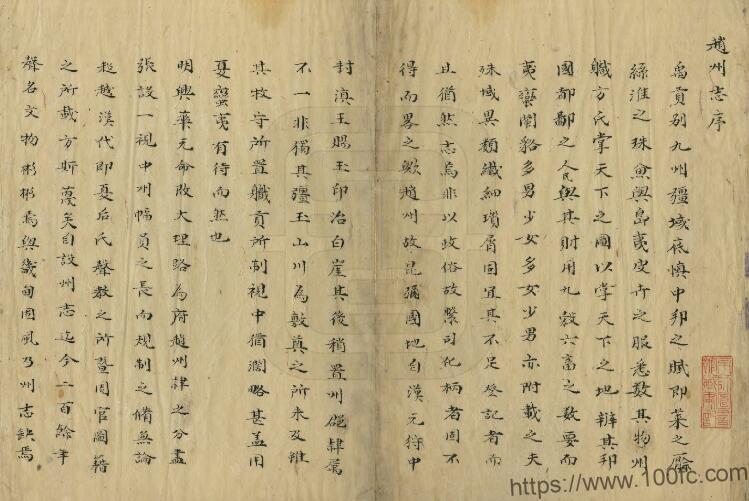 趙州志序
禹貢别九州疆域底慎中邦之賦即萊之檿
絲淮之珠魚與島夷皮卉之服悉数其物州
職方氏掌天下之圖以掌天下之地辨其邦
國都鄙之人民與其財用九穀六畜之数要而
夷蠻閩貉多男少女多女少男亦附載之夫
殊域異類纖細瑣屑固宜其不足登記者而
止猶然志焉非以政俗故繫司化柄者固不
得而畧之歟趙州故昆彌國地自漢元狩中
封滇王賜玉印治白崖其後稍置州縋隷属
不一非獨其疆玉山川為敷真之所未及雖
其牧守所置職貢所制視中猶濶略甚盖用
夏蠻夷有待而然也
明興華元命改大理路為府趙州隷之分盡
張設一視中州幅員之長而規制之備無論
超越漢代即夏后氏聲教之所暨周官圖籍
之所載方斯蔑矣自設州志迄今二百餘年
聲名文物彬彬焉與畿甸同風乃州志缺焉
https://www.100fc.com